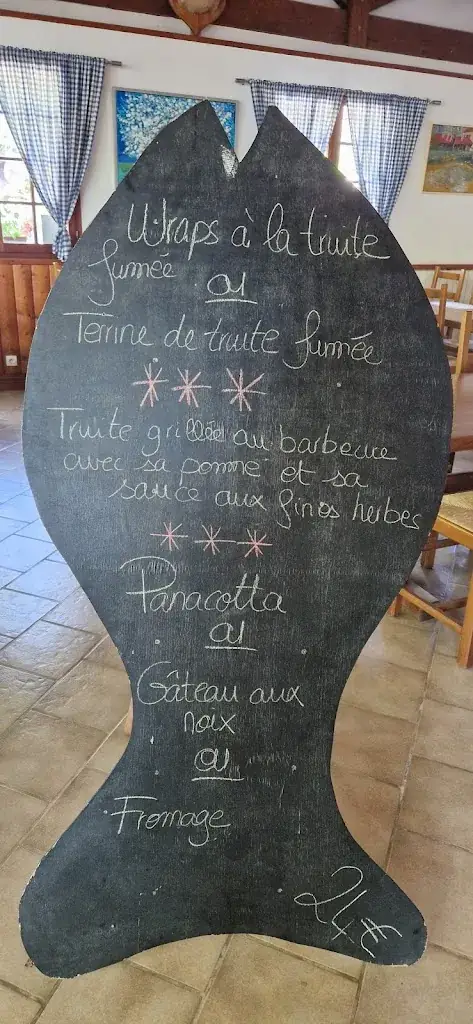 Wraps à la truite
fumée
ou
Terrine de truite fumée
***
Truite grillée au barbecue
avec sa pomme et sa
sauce aux fines herbes
***
Panacotta
ou
Gâteau aux
noix
ou
Fromage
24€